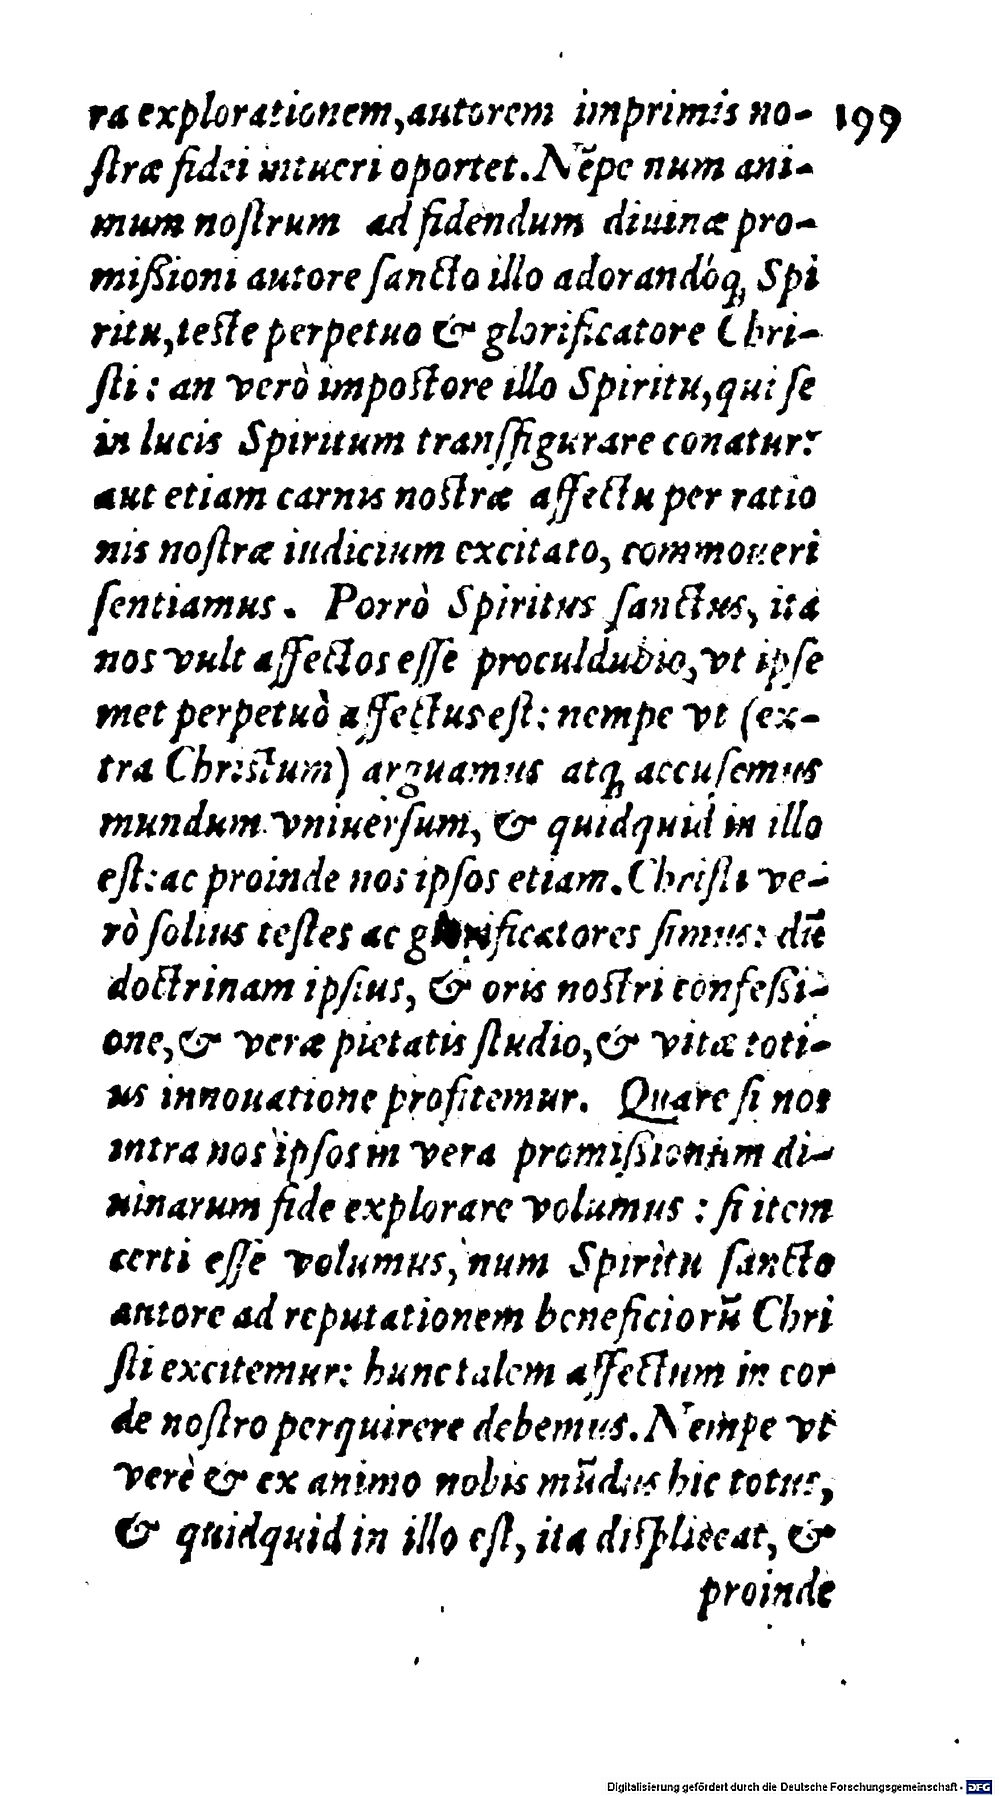 ra explorationem, autorem imprimis no- 199
ſtræ fidei intueri oportet. Nẽpe num ani-
mum noſtrum ad fidendum diuinæ pro-
miſsioni autore ſancto illo adorandóq; Spi
ritu, teſte perpetuo & glorificatore Chri-
ſti: an verò impoſtore illo Spiritu, qui ſe
in lucis Spiritum tranſfigurare conatur?
aut etiam carnis noſtræ affectu per ratio
nis noſtræ iudicium excitato, commoueri
ſentiamus. Porrò Spiritus ſanctus, ita
nos vult affectos eſſe proculdubio, vt ipſe
met perpetuò affectus eſt: nempe vt (ex-
tra Chriſtum) arguamus atq; accuſemus
mundum vniuerſum, & quidquid in illo
eſt: ac proinde nos ipſos etiam. Chriſti ve-
rò ſolius teſtes ac glorificatores ſimus: dũ
doctrinam ipſius, & oris noſtri confeſsi-
one, & veræ pietatis ſtudio, & vitæ toti-
us innouatione profitemur. Quare ſi nos
intra nos ipſos in vera promiſsionum di-
uinarum fide explorare volumus: ſi item
certi eſſe volumus, num Spiritu ſancto
autore ad reputationem beneficiorũ Chri
ſti excitemur: hunc talem affectum in cor
de noſtro perquirere debemus. Nempe vt
verè & ex animo nobis mũdus hic totus,
& quidquid in illo eſt, ita diſpliceat, &
proinde
Digitalisierung gefördert durch die Deutsche Forschungsgemeinschaft - DFG